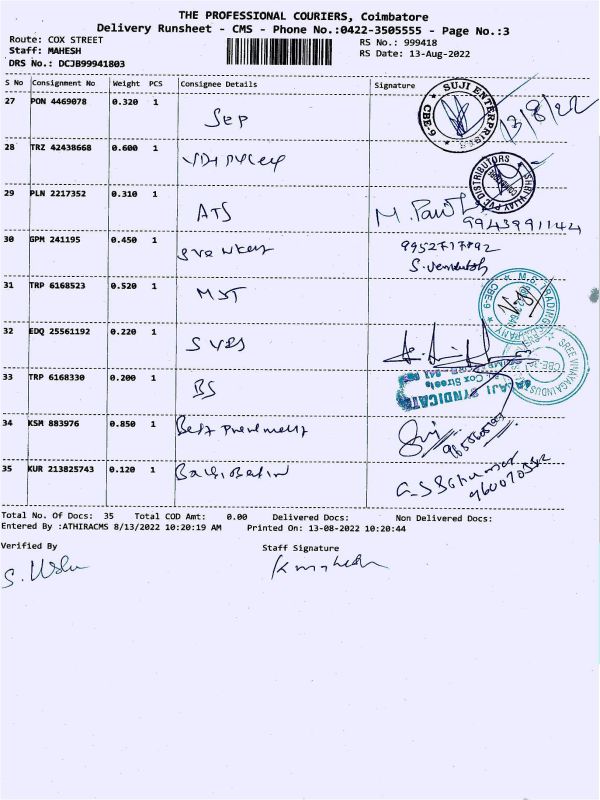 THE PROFESSIONAL COURIERS, Coimbatore
Delivery Runsheet - CMS - Phone No.:0422-3505555 - Page No.:3
Route: COX STREET RS No.: 999418
Staff: MAHESH RS Date: 13-Aug-2022
DRS No.: DCJB99941803
S No Consignment No Weight PCS Consignee Details Signature
27 PON 4469078 0.320 1 SUJI ENTERPRISES CBE-6 13/8/22
28 TRZ 42438668 0.600 1 SHRI VIJAY PVC DISTRIBUTORS
29 PLN 2217352 0.310 1 ATS
9943991144
30 GPM 241195 0.450 1 9952717892
31 TRP 6168523 0.520 1 MST M.S. TRADING COMPANY CBE-9
32 EDQ 25561192 0.220 1
33 TRP 6168330 0.200 1 BS SYNDICATE Cox Street
34 KSM 883976 0.850 1 Best
35 KUR 213825743 0.120 1
Total No. Of Docs: 35 Total COD Amt: 0.00 Delivered Docs: Non Delivered Docs:
Entered By :ATHIRACMS 8/13/2022 10:20:19 AM Printed On: 13-08-2022 10:20:44
Verified By Staff Signature